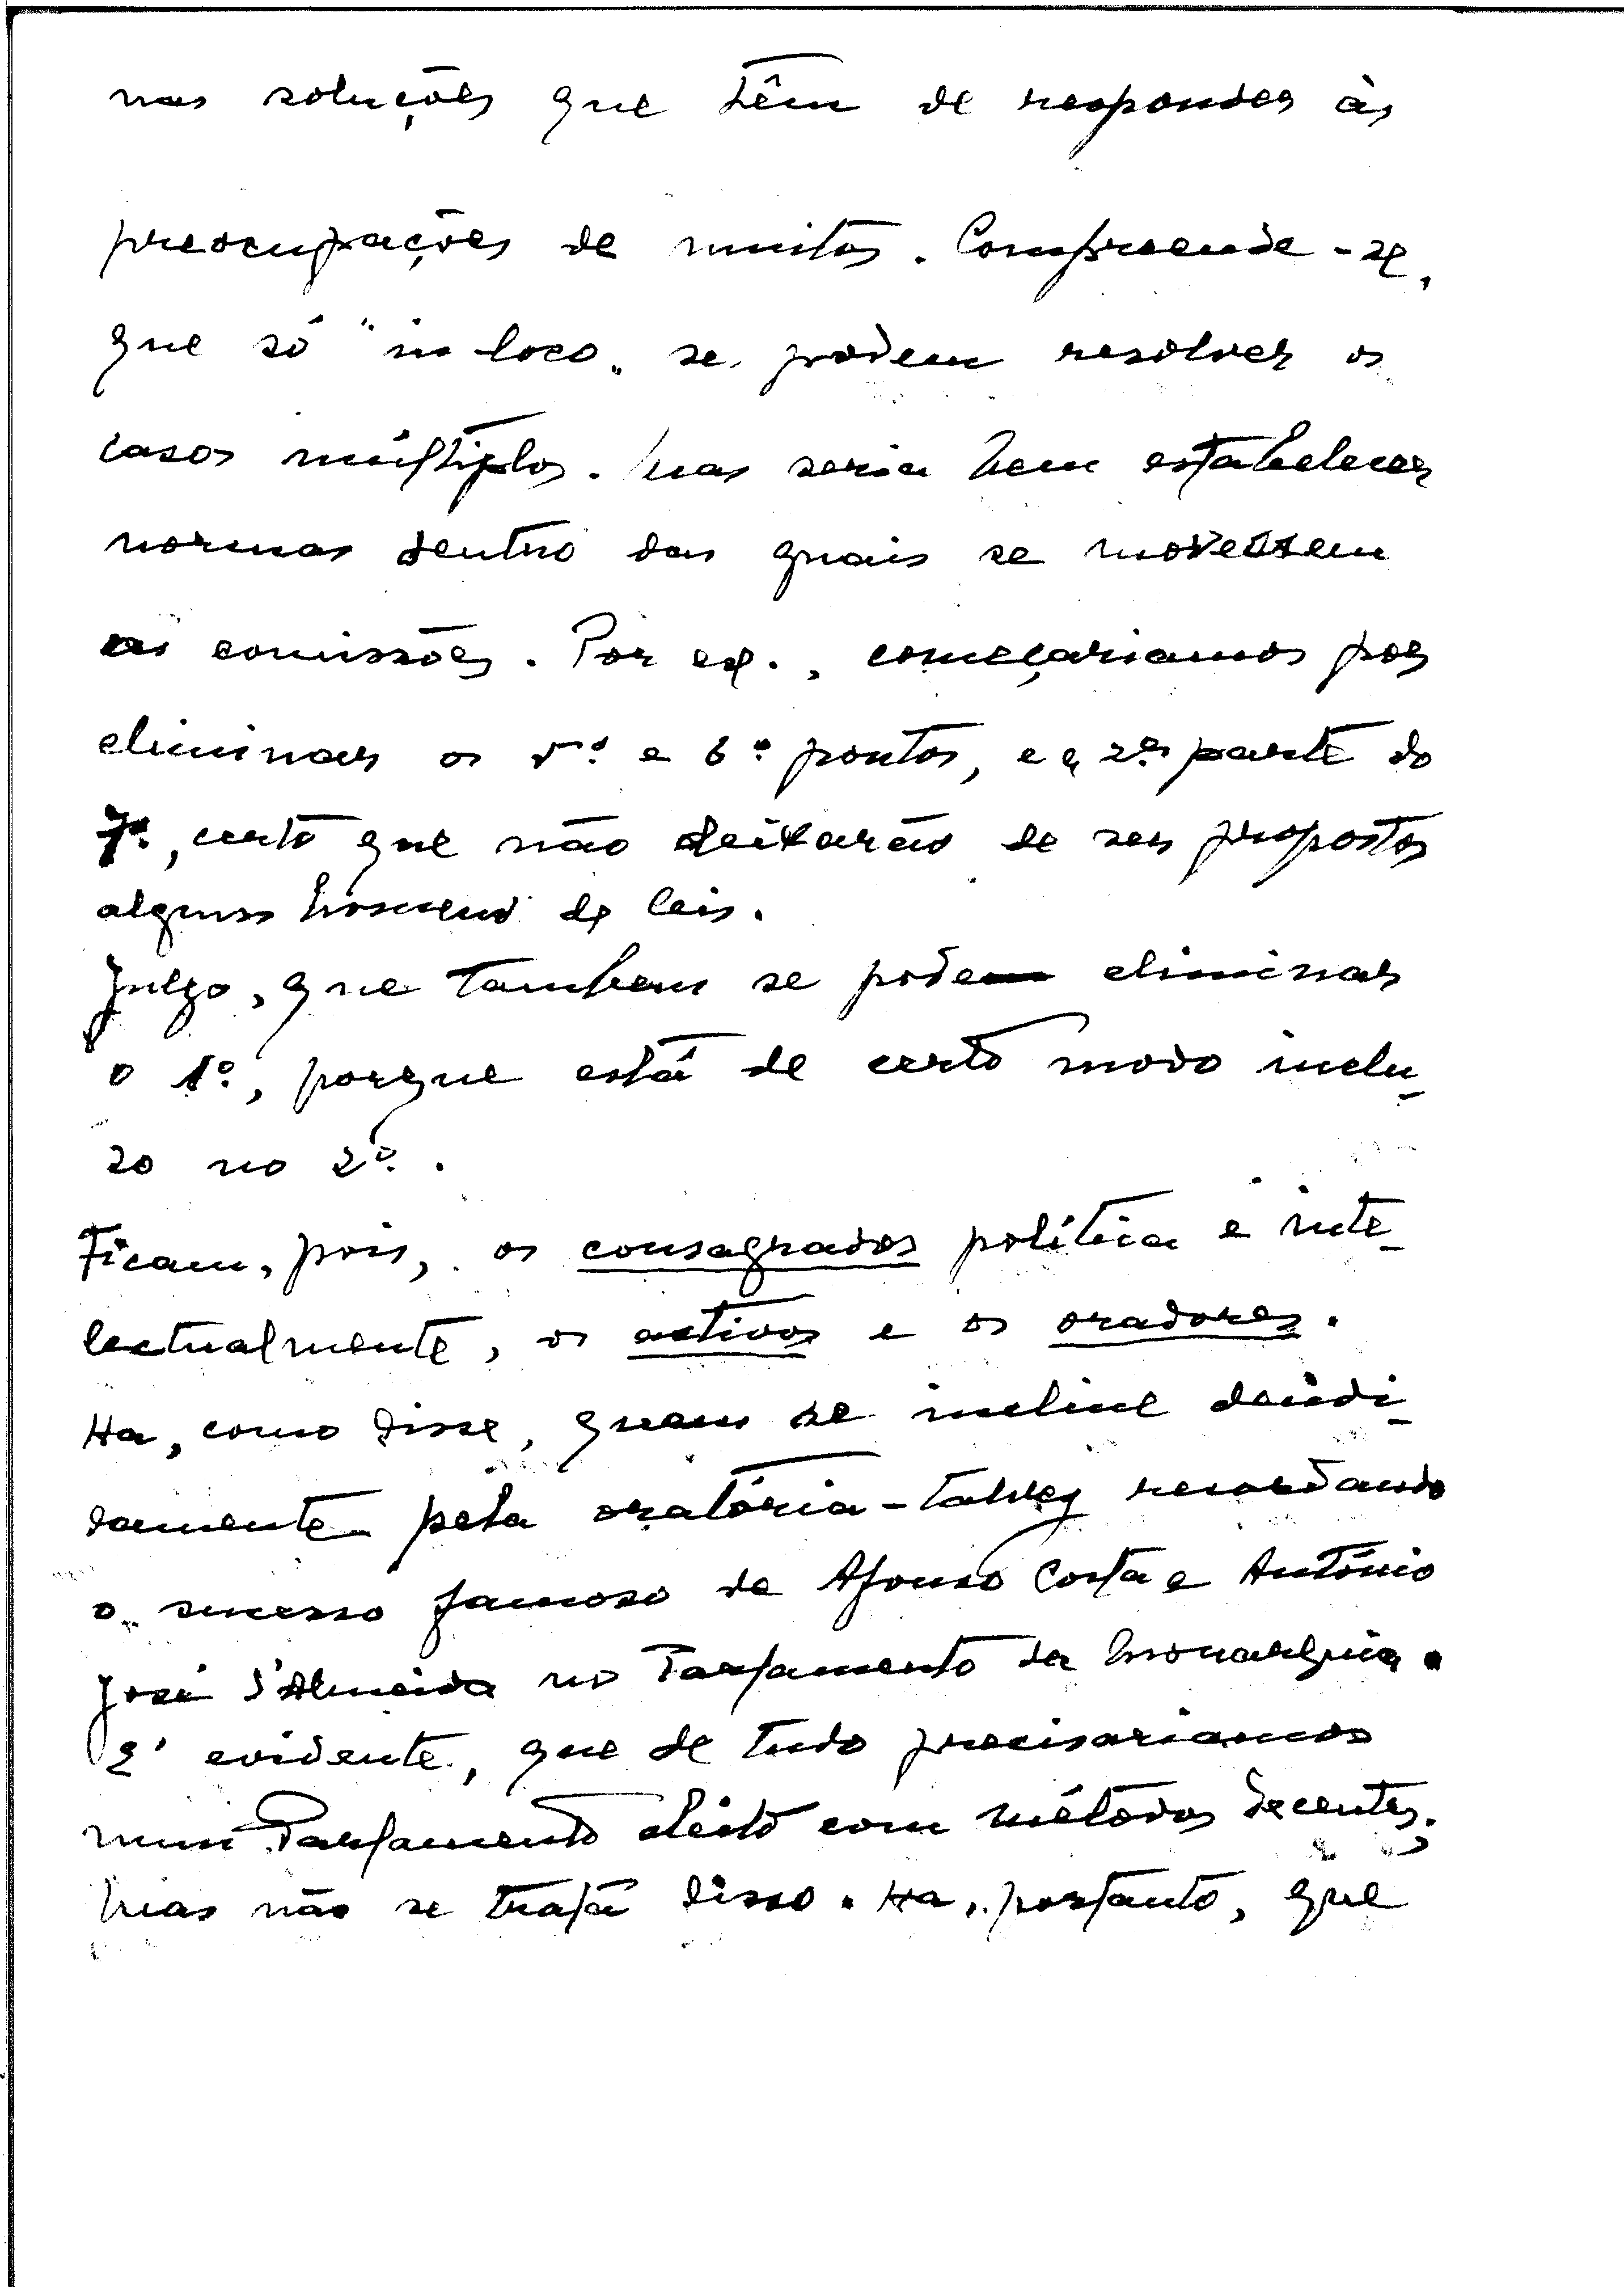 nas soluções que têm de responder às
preocupações de muitos. Compreende-se,
que só "in loco" se podem resolver os
casos múltiplos. Mas seria bem estabelecer
normas dentro das quais se movessem
as comissões. Por ex., começariamos por
eliminar os 5.º e 6.º pontos, e a 2.ª parte do
7.º, certo que não deixarão de ser propostos
alguns homens de leis.
Julgo, que tambem se pode eliminar
o 1.º, porque está de certo modo inclu-
so no 2.º.
Ficam, pois, os consagrados política e inte-
lectualmente, os activos e os oradores.
Ha, como disse, quem se incline decidi-
damente pela oratória - talvez recordando
o sucesso famoso de Afonso Costa e António
José d'Almeida no Parlamento da Monarquia.
E' evidente, que de tudo precisariamos
num Parlamento eleito com métodos decentes;
Mas não se trata disso. Ha, portanto, que